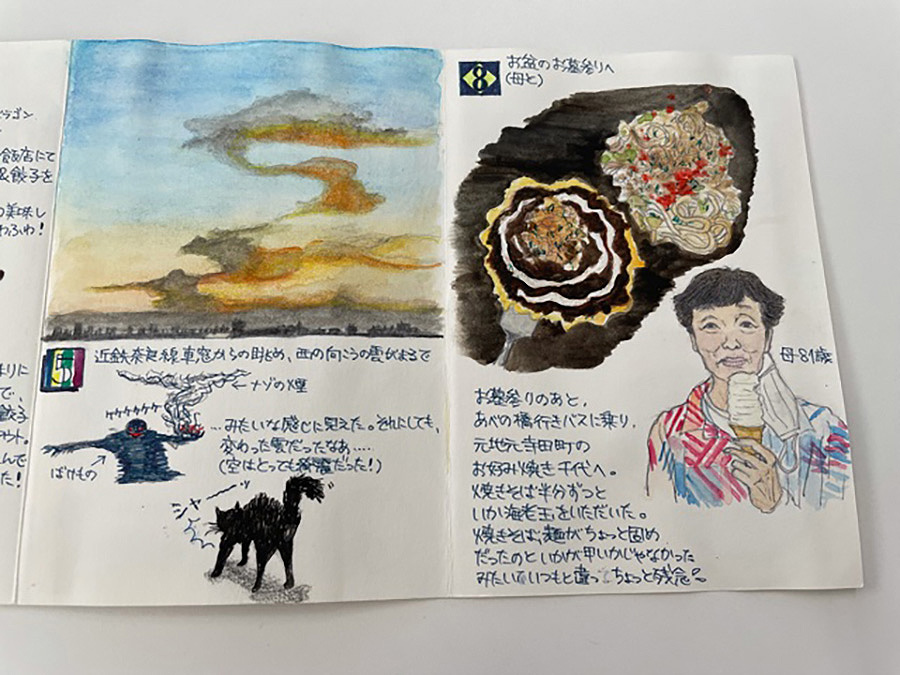 ドラゴン
飯店にて
餃子を
の美味し
わふわ！
まりに
で、
餃子
ウト。
んで
た！
5
近鉄奈良線車窓からの眺め、西の向こうの雲がまるで
ナゾの煙
ケケケケケケ
ばけもの
…みたいな感じに見えた。それにしても、
変わった雲だったなあ….
(空はとっても綺麗だった！)
シャーーッ
8
お盆のお墓参りへ
(母と)
母81歳
お墓参りのあと、
あべの橋行きバスに乗り、
元地元寺田町の
お好み焼き千代へ。
焼きそば半分ずっと
いか海老玉をいただいた。
焼きそば、麺がちょっと固め
だったのといかが甲いかじゃなかった
みたいでいつもと違ってちょっと残念